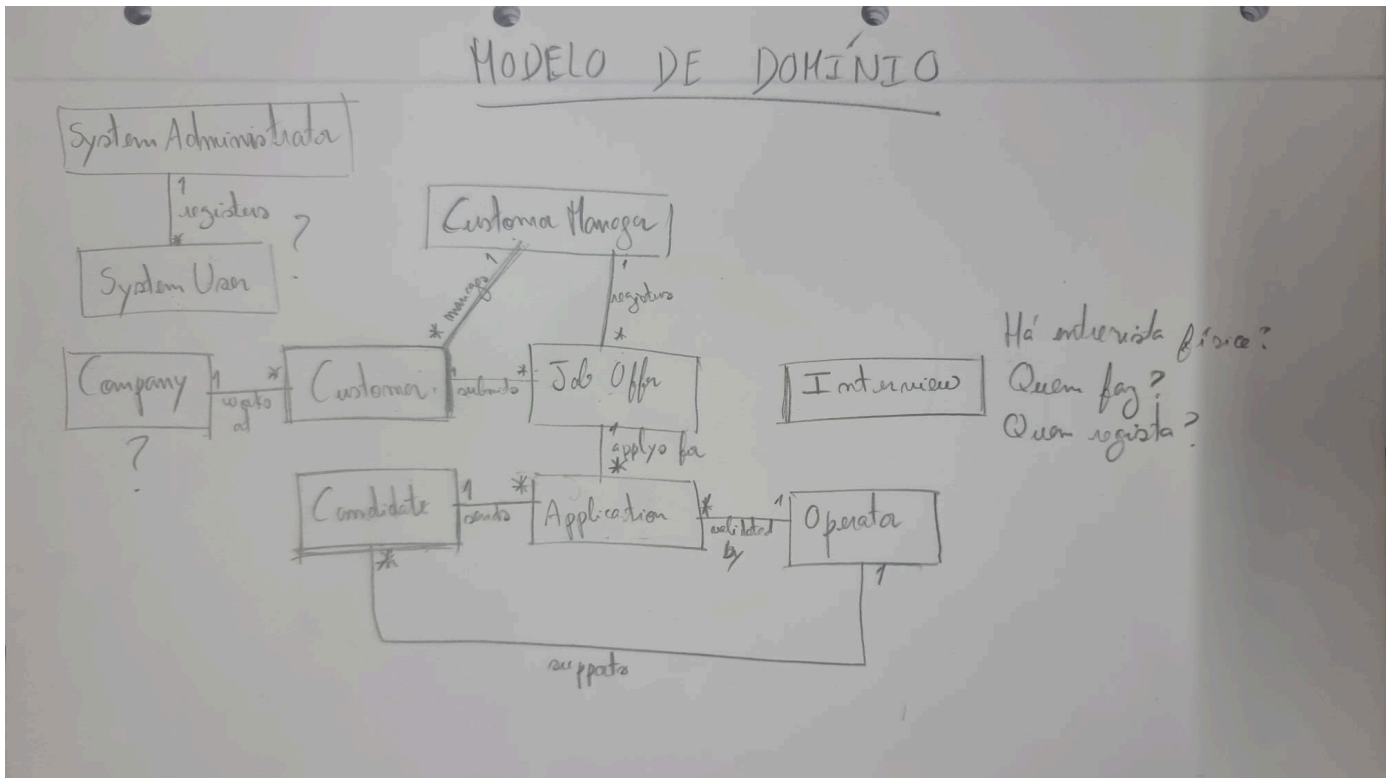 MODELO DE DOMÍNIO
System Administrator
1
registers
*
?
System User
Customer Manager
1
manages
*
1
registers
*
Company
1
works
at
*
?
Customer
1
submits
*
Job Offer
Interview
Há entrevista física?
Quem faz?
Quem regista?
1
applys for
*
Candidate
1
sends
*
Application
*
validated
by
1
Operator
*
1
supports